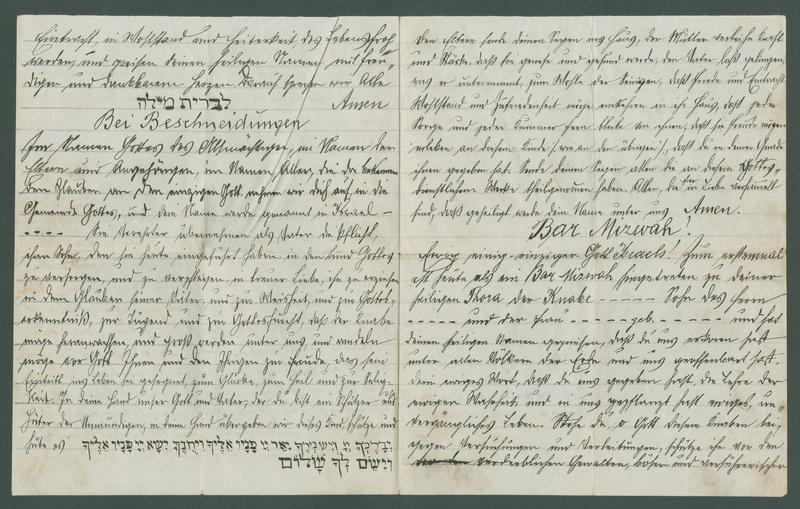 Eintracht, in Wohlstand und Heiterkeit des Lebens froh
werden, und preisen deinen heiligen Namen mit freu-
digem und dankbarem Herzen. Darauf sprechen wir Alle
לברית מילה Amen
Bei Beschneidungen
Im Namen Gottes des Allmächtigen, im Namen der
Eltern und Angehörigen, im Namen Aller, die da bekennen
den Glauben an den einzigen Gott, nehmen wir dich auf, in die
Gemeinde Gottes, und dein Name werde genannt in Israel –
– – – – Sie Verehrter übernehmen als Vater die Pflicht,
ihren Sohn, den sie heute eingeführt haben in den Bund Gottes
zu versorgen, und zu verpflegen in treuer Liebe, ihn zu erziehen
in dem Glauben seiner Väter, und zur Weisheit, und zur Gottes-
erkenntniß, zur Tugend und zur Gottesfurcht, daß der Knabe
möge heranwachsen, und groß werden unter uns, und wandeln
möge vor Gott Ihnen und den Ihrigen zur Freude, das sein
Eintritt ins Leben sei gesegnet, zum Glücke, zum Heil und zur Selig-
keit. In deine Hand unser Gott und Vater, der du bist ein Schützer und
Hüter der Unmündigen, in deine Hand übergeben wir dieses Kind, schütze und
hüte es יברכך יי וישמרך יאר יי פניו אליך ויחנך ישא יי פניו אליך
וישם לך שלום
Den Eltern sende deinen Segen ins Haus, der Mutter verleihe Kraft
und Stärke, daß sie genese und gesund werde, den Vater laß gelingen,
was er unternimmt, zum Wohle der Seinigen, daß Friede und Eintracht
Wohlstand und Zufriedenheit möge einkehren in ihr Haus, daß jede
Sorge und jeder Kummer fern bleibe von ihnen, daß sie Freude mögen
erleben an diesem Kinde (wie an den übrigen), daß du in deiner Gnade
ihnen gegeben hast. Sende deinen Segen allen die an diesem Gottes-
dienstlichen Werke theilgenommen haben. Allen, die hier in Liebe versammelt
sind, daß geheiligt werde dein Name unter uns Amen.
Bar Mizwah!
einig-einziger Gott Israels! Zum erstenmal
ist heute als ein Bar Mizwah hingetreten zu deiner
heiligen Thora der Knabe – – – – – Sohn des Herrn
– – – – – und der Frau – – – – – geb. – – – – – und hat
deinen heiligen Namen gepriesen, daß du uns erkoren hast
unter allen Völkern der Erde und uns geoffenbart hast
dein ewiges Wort, daß du uns gegeben hast, die Lehre der
ewigen Wahrheit, und in uns gepflanzt hast ewiges, un-
vergängliches Leben. Stehe du, o Gott diesem Knaben bei,
gegen Versuchungen und Verleitungen, schütze ihn vor den
verderblichen Gewalten, böser und verführerischer